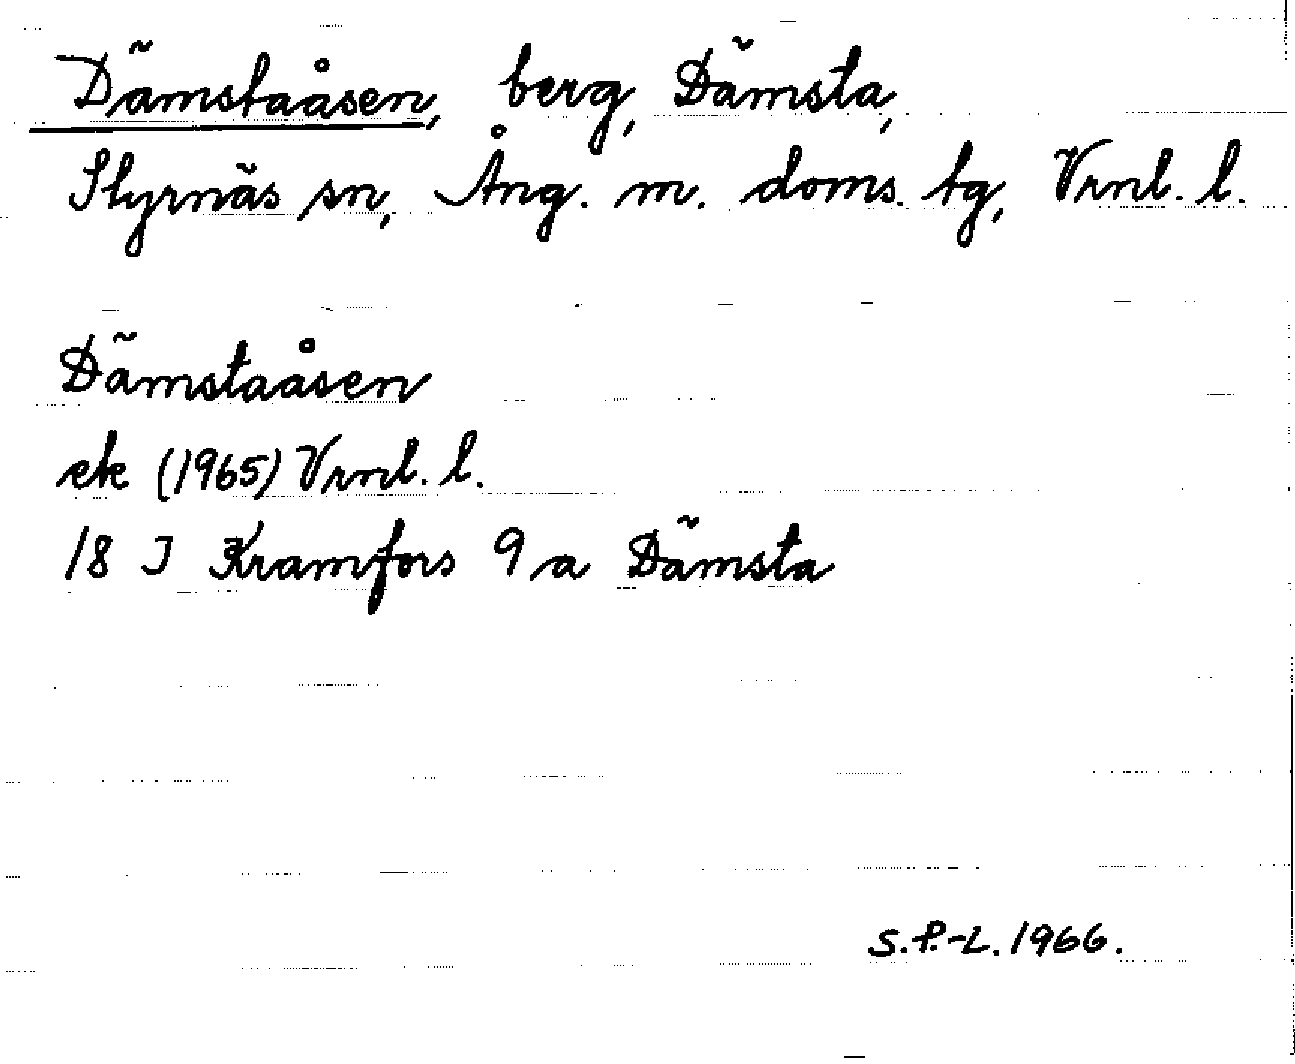 Dämstaåsen, berg, Dämsta,
Styrnäs sn, Ång. m. doms. tg, Vrnl. l.
Dämstaåsen
ek (1965) Vrnl. l.
18 J Kramfors 9 a Dämsta
S.P.-L. 1966.